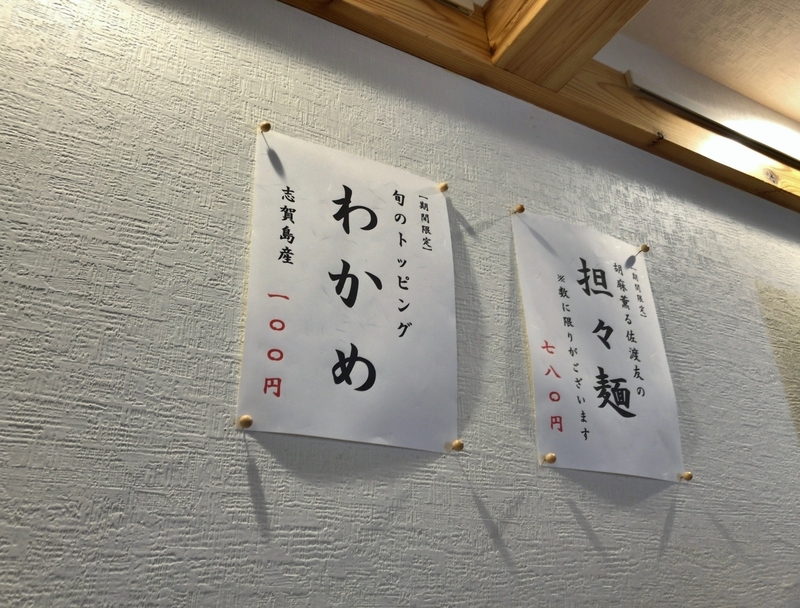 【期間限定】
旬のトッピング
わかめ
志賀島産
一〇〇円
【期間限定】
胡麻薫る佐渡友の
担々麺
※数に限りがございます
七八〇円